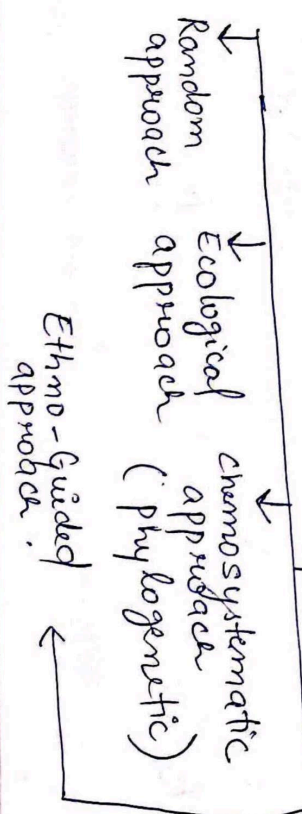 Random
approach
Ecological
approach
chemosystematic
approach
(phylogenetic)
Ethno-Guided
approach.